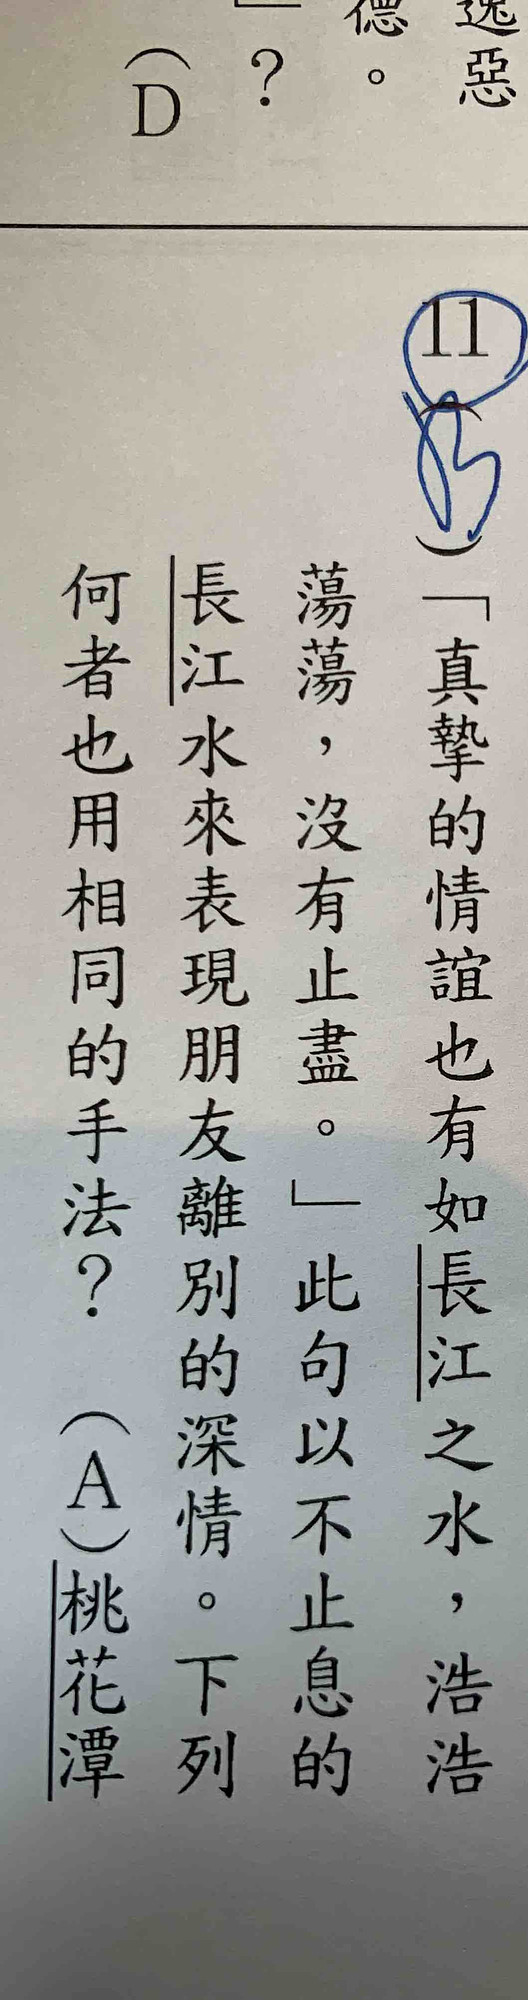 逸惡
德。
」?
(D
11
( )「真摯的情誼也有如長江之水,浩浩
蕩蕩,沒有止盡。」此句以不止息的
長江水來表現朋友離別的深情。下列
何者也用相同的手法? (A)桃花潭